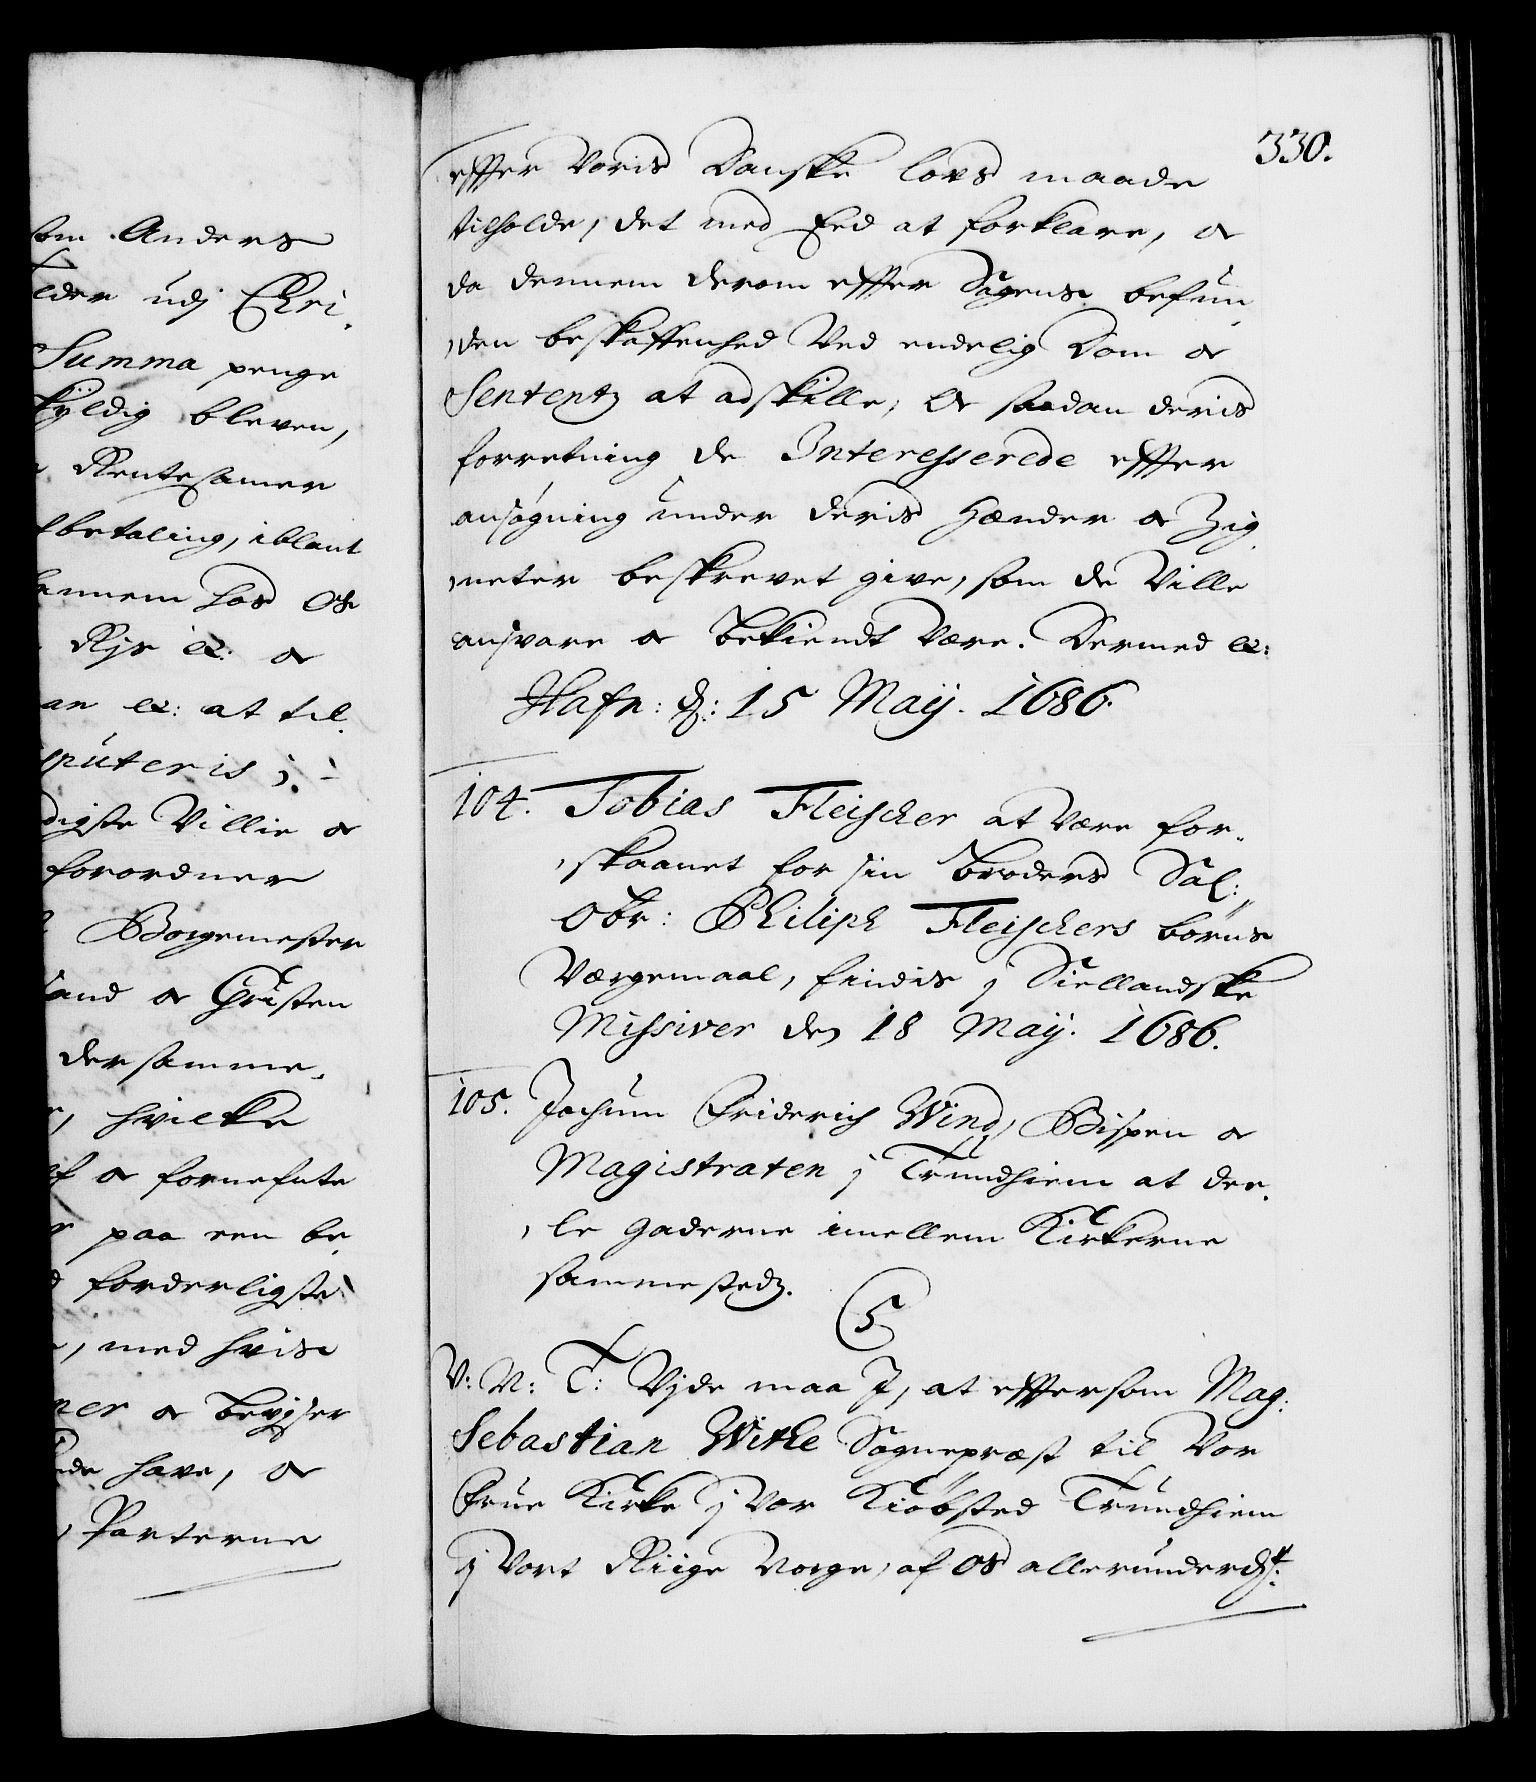 som Anders
elder udj Chri,
Summa penge
skyldig bleven,
Rentesamer
betaling, iblant
dennem hos Os
Rjs &: oc
an &: at til,
puteris;
digste Villie oc
forordner
Borgemester
land oc Christen
der samme,
hvilke
af oc fornefnte
paa een be,
forderligste
med hvis
ner oc beviser
nde have, oc
Parterne
330.
effter Voris Danske lovs maade
tilholde, det med Eed at forklare, oc
da dennem derom effter Sagens befun,
,den beskaffenhed Ved endelig Dom oc
Sententz at adskille, Oc saadan deris
forretning de Interesserede effter
ansøgning under deris Hænder oc Zig,
,neter beskrevet give, som de Ville
ansvare oc bekiendt være. Dermed &:
Hafn: d: 15 Maij. 1686.
104. Tobias Fleischer at være for,
,skaanet for sin Broders Sal:
Obr: Philiph Fleischers børns
Værgemaal, findis j Siellandske
Missiver den 18 Maij. 1686.
105. Jochum Friderich Wind, Bispen oc
Magistraten j Trundhiem at dee,
,le gaderne imellem Kirkerne
sammestedz.
C5
V: N: T: Vjde maa I, at efftersom Mag:
Sebastian Withe Sognepræst til Vor
Frue Kirke j vor Kiøbsted Trundhiem
j Vort Riige Norge, af OS allerunderd:st